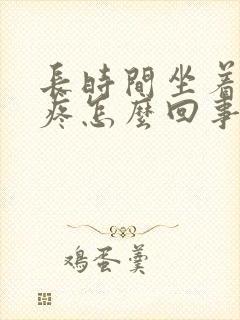 長時間坐着
疼怎麼回事
鸡蛋羹